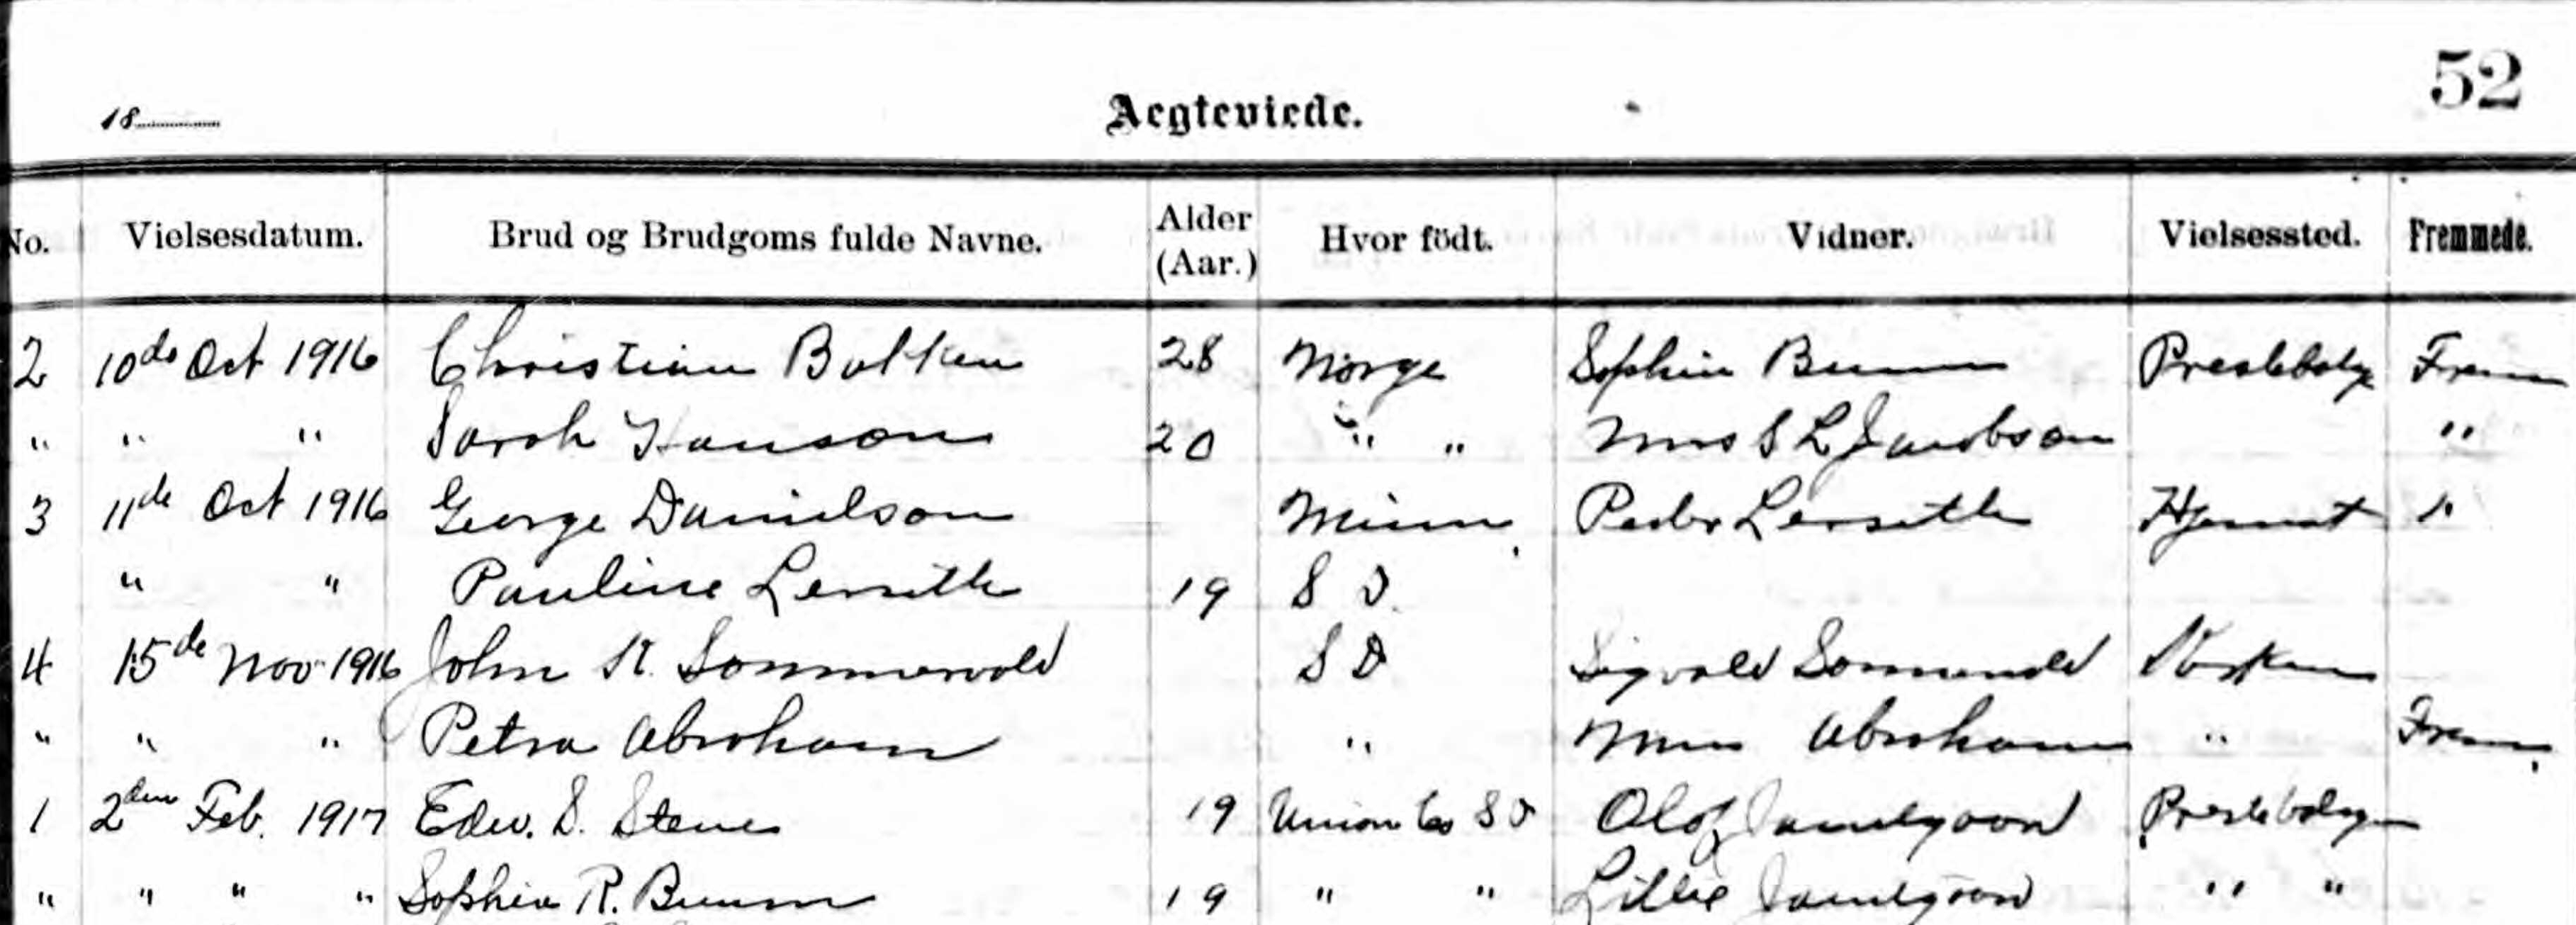 52
18
Aegteviede.
No. Vielsesdatum. Brud og Brudgoms fulde Navne. Alder (Aar.) Hvor födt. Vidner. Vielsessted. Fremmede.
2 10de Oct 1916 Christian 28 Norge Sophia Prestebolig Frem
" " " Sarah Hanson 20 " " Mrs S L Jacobson "
3 11de Oct 1916 George Danielson Minn. Peder Lerseth Hjemmet "
" " Pauline Lerseth 19 S D.
4 15de Nov 1916 John K. Sommervold S D Sigvald
" " " Petra Abraham " Abraham " Frem.
1 2den Feb. 1917 Edw. S. 19 Union Co S D Olof Prestebolig
" " " " Sophia R. 19 " " Lillie " "